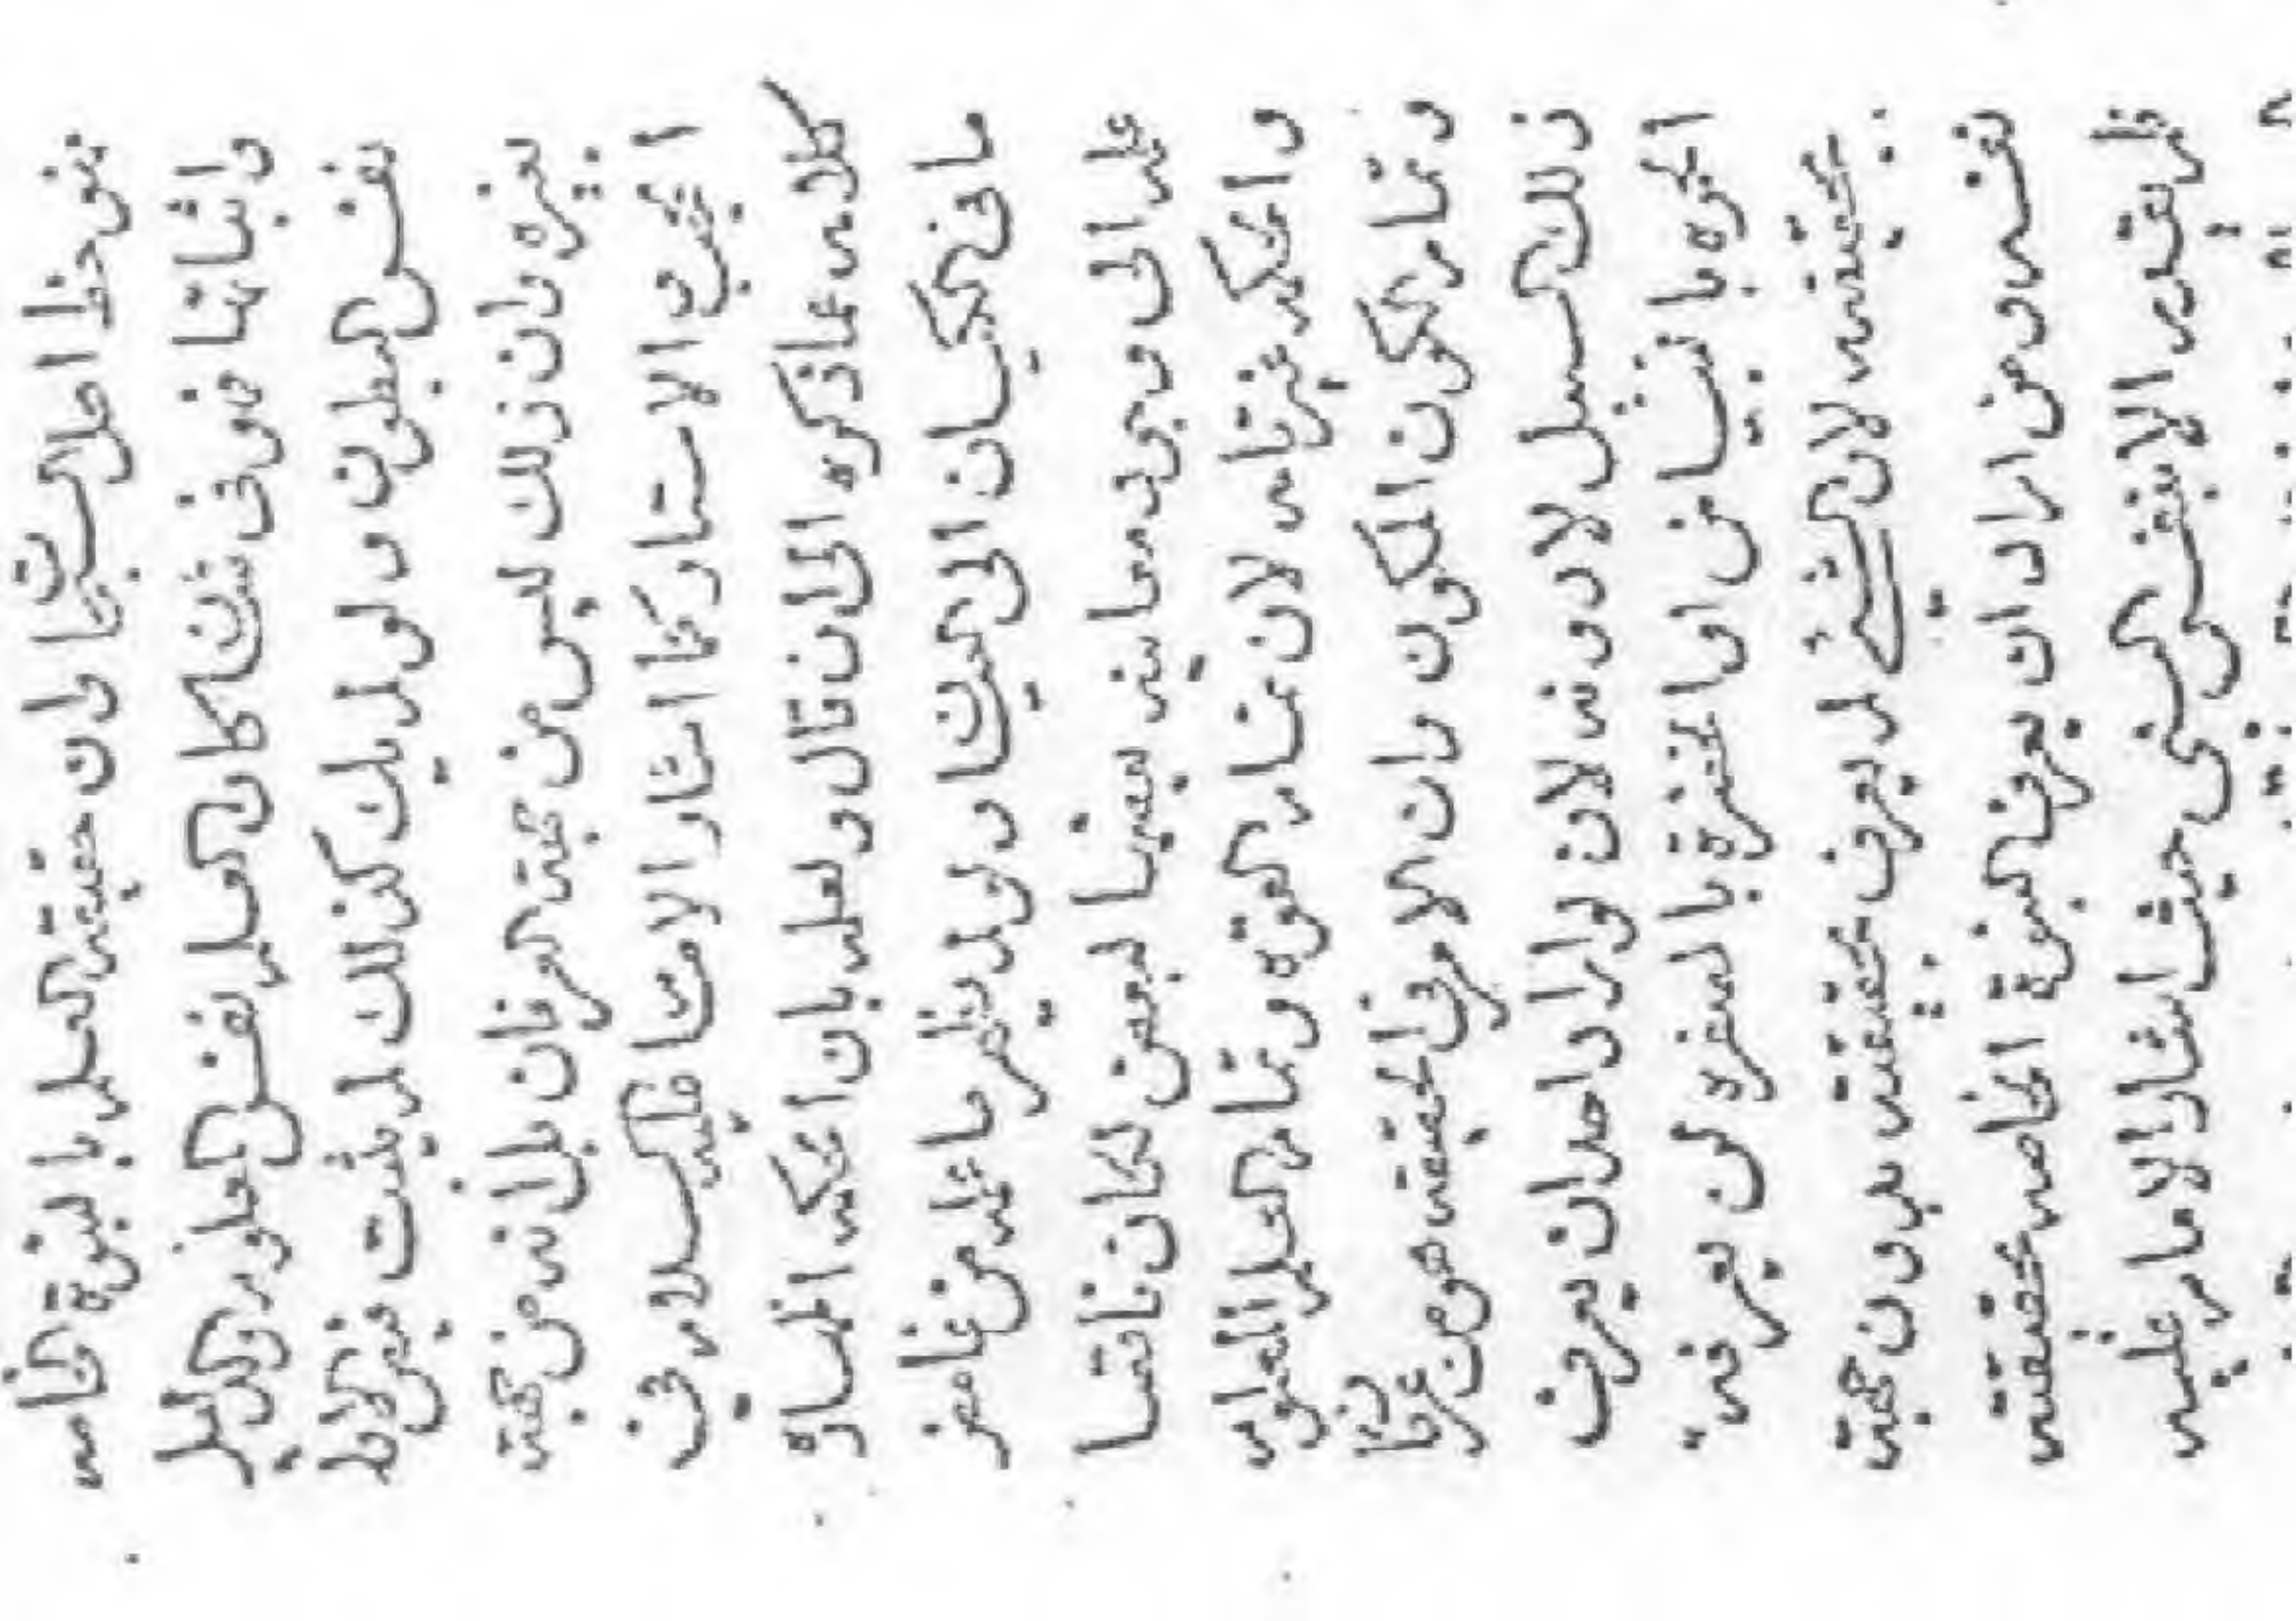 بنفى حفظ اطلاق الشيئا وان حقيقة العلم بالنبوة الخاصه
واثباتها هو فى شان كان العلم نفس المعلوم ولكن لم
نفس البطون ولو لم يك كذلك لم يثبت
بغيره وان ذلك ليس من جهة العرفان بل انه من جهة
الحجب والاستار كما اشار الامام عليه السلام فى
كلامه عما ذكره الى ان قال ولعله بان احكيه المساوق
ما فى الكيان الى العيان ولو لم يظهر ما علمه من غامض
علمه الى وجود معانيه بعضها لبعض لكان ناقصا
والحكمة غير تامه لان تمام القوة وتمام العلم المعلوم
وتمام الكون المكون وان الامر فى الحقيقه هو من عرفنا
ذلك السبيل لا دونه لان لو اراد احد ان يعرف
الحمرة بالبياض او الخضرة بالصفرة لن يعرفه
بحقيقته لان الشئ لم يعرف بحقيقته بدون جهة
نفسه ومن اراد ان يعرف النبوة الخاصه بحقيقته
فلم يقدر الا بنفس النبى حيث اشار الامام عليه